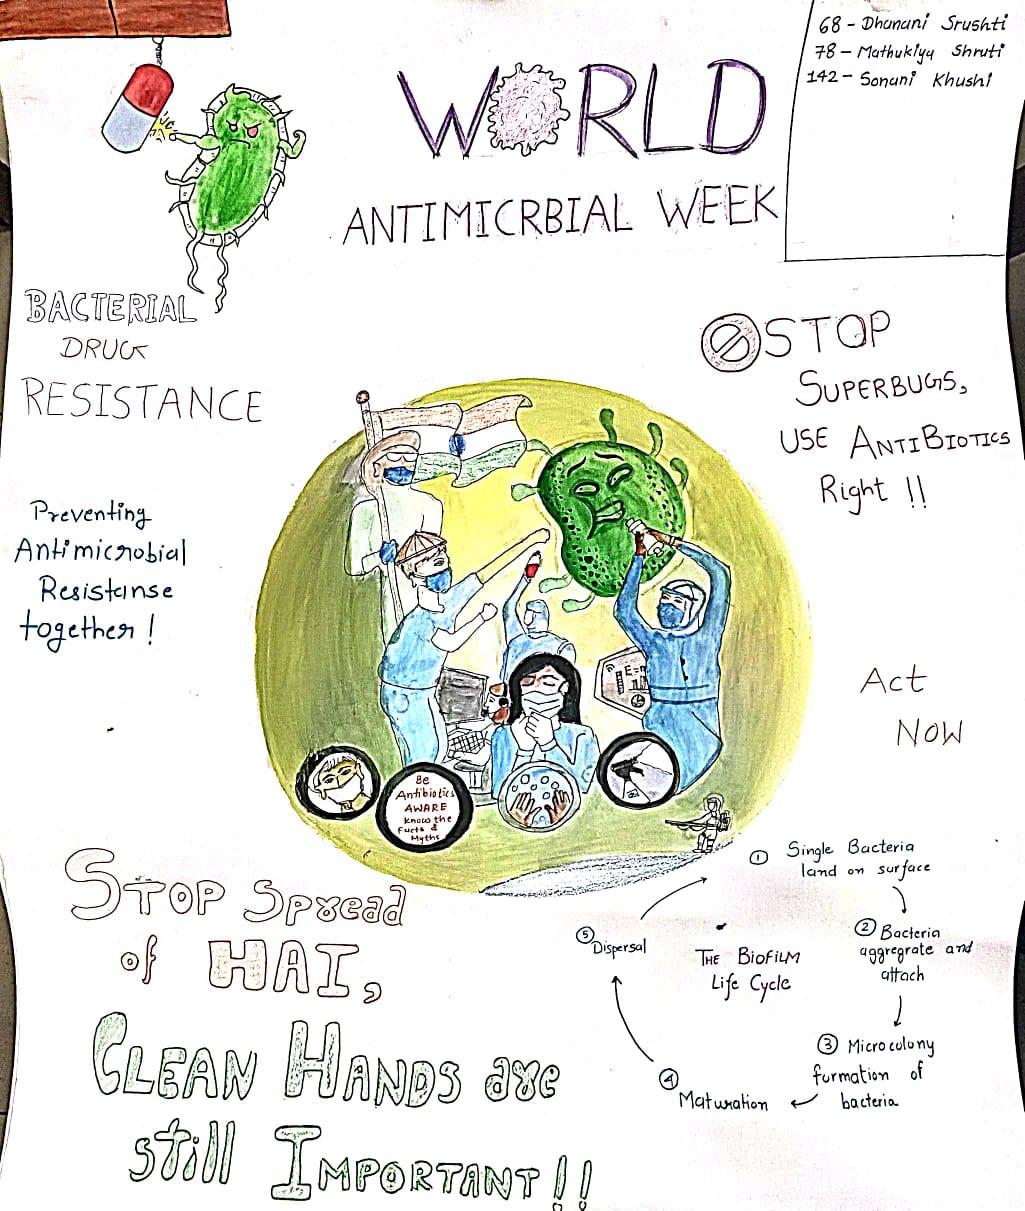 68 - Dhanani Srushti
78 - Mathukiya Shruti
142 - Sonani Khushi
WORLD
ANTIMICRBIAL WEEK
BACTERIAL
DRUG
RESISTANCE
STOP
SUPERBUGS,
USE ANTIBIOTICS
Right !!
Preventing
Antimicrobial
Resistanse
together!
Act
NOW
E=m
Be
Antibiotics
AWARE
Know the
Facts &
Myths
STOP Spread
of HAI,
CLEAN HANDS are
still IMPORTANT!!
THE BIOFILM
Life Cycle
① Single Bacteria
land on surface
② Bacteria
aggregrate and
attach
③ Microcolony
formation of
bacteria
④ Maturation
⑤ Dispersal